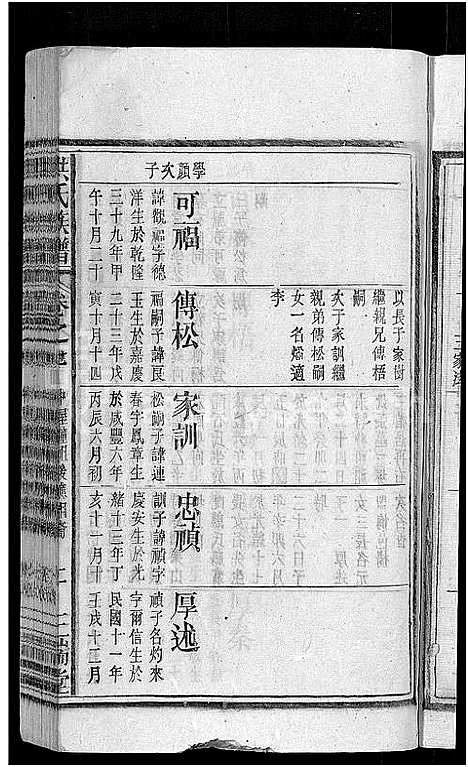 學顔次子
以長于家樹
繼親兄傳梧
嗣
次于家訓繼
親弟傳松嗣
女一名煙適
李
可福
諱觀福字德
洋生於乾隆
三十九年甲
午十月二十
傳松
福嗣子諱良
玉生於嘉慶
二十三年戊
寅十月十四
家訓
松嗣子諱連
春字鳳章生
於咸豐六年
丙辰六月初
忠禎
訓子諱禎字
慶安生於光
緒十三年丁
亥十一月十
厚述
禎子名灼來
字爾信生於
民國十一年
壬戌十二月
洪氏族譜
卷之